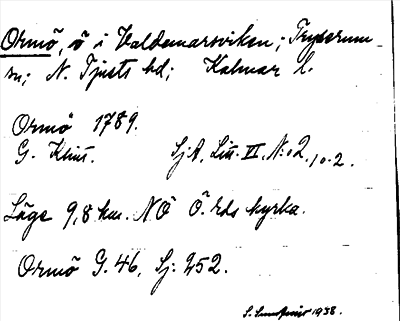 Ormö, ö i Valdemarsviken; Tryserum
sn; N. Tjusts hd; Kalmar l.
Ormö 1789.
G. Klint. SjA, Litt. VI, N:o 2, 10.2.
Läge 9,8 km. NÖ Ö. Eds kyrka.
Ormö G. 46, Sj. 252.
1938.